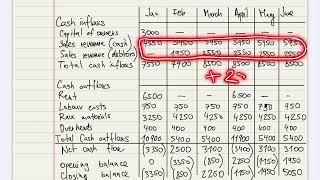 Jan Feb March April May June
Cash inflows
Capital of owners 3000 — — — — —
Sales revenue (cash) 5950 5950 5950 5950
Sales revenue (debtors) — 2550
Total cash inflows 8500 8500 8500
+ 2
Cash outflows
Rent 6500 — — 6500 — —
Labour costs 750 750 750 750 750 750
Raw materials 3250 4250 4250 4250 4250 4250
Overheads 400 400 400 400 400 400
Total Cash outflows 10900 5400 5400 11900 5400 5400
Net cash flow (3350) 2500 3100 (3400) 3100
Opening balance 0 (3350) (850) 2250 (1150) 1950
Closing balance (3350) (850) 2250 (1150) 1950 5050